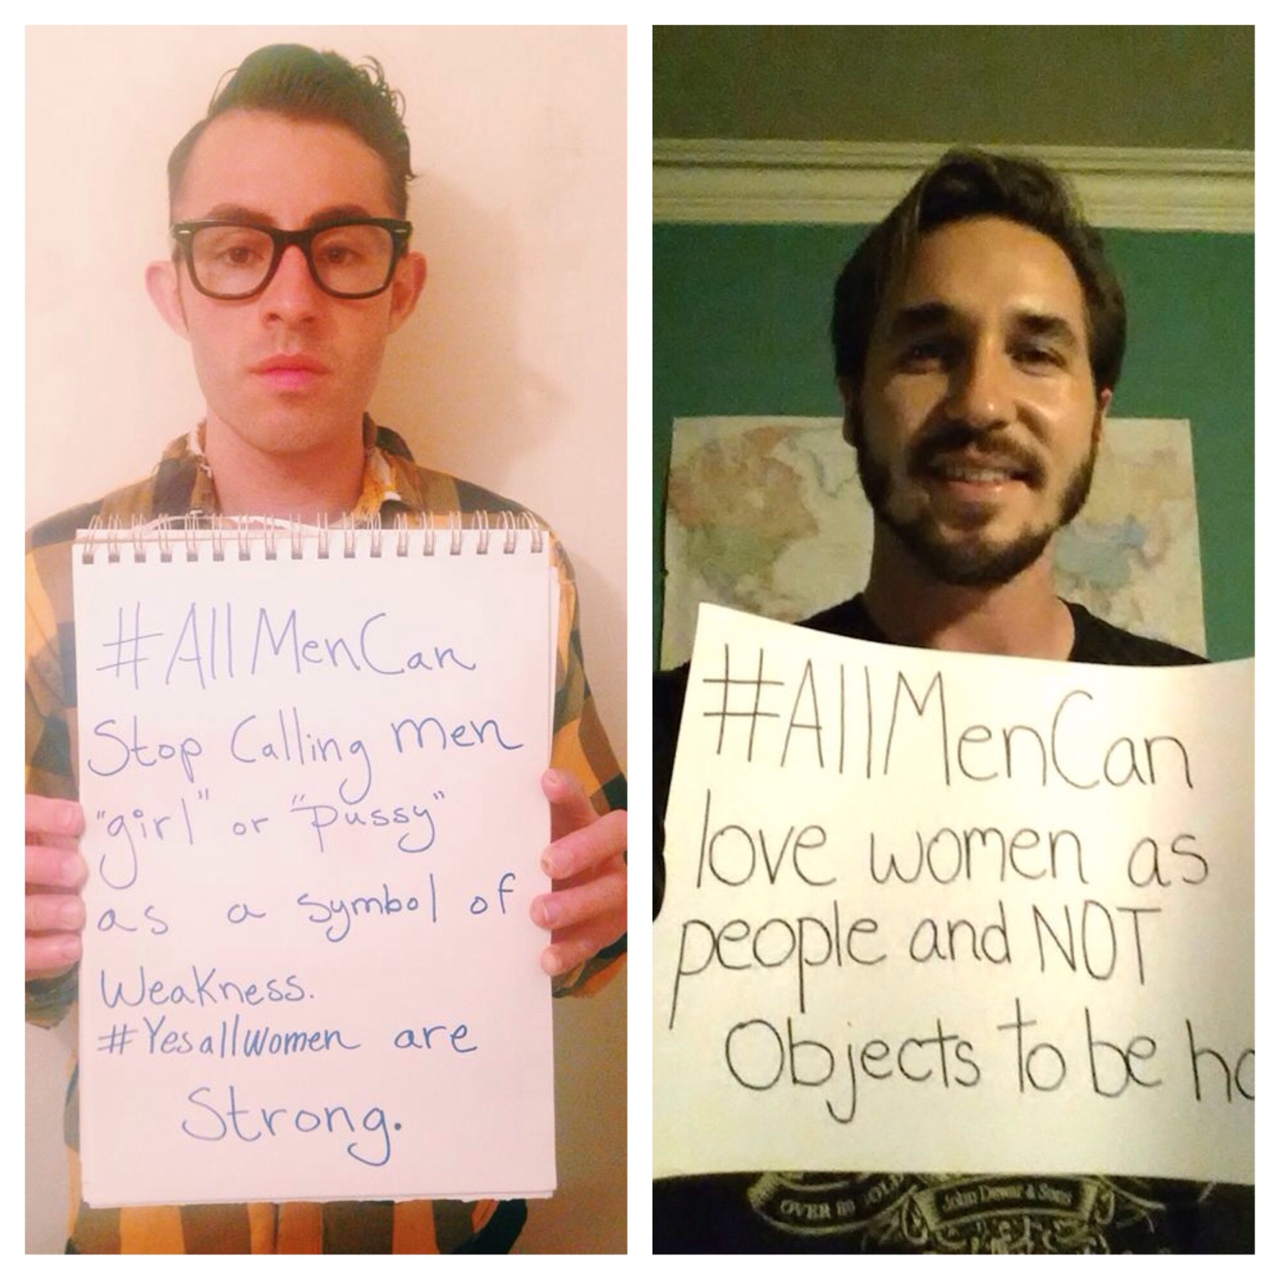 #AllMenCan
Stop Calling men
"girl" or "Pussy"
as a symbol of
Weakness.
#YesallWomen are
Strong.
#AllMenCan
love women as
people and NOT
Objects to be
OVER 80
John Dewar & Sons